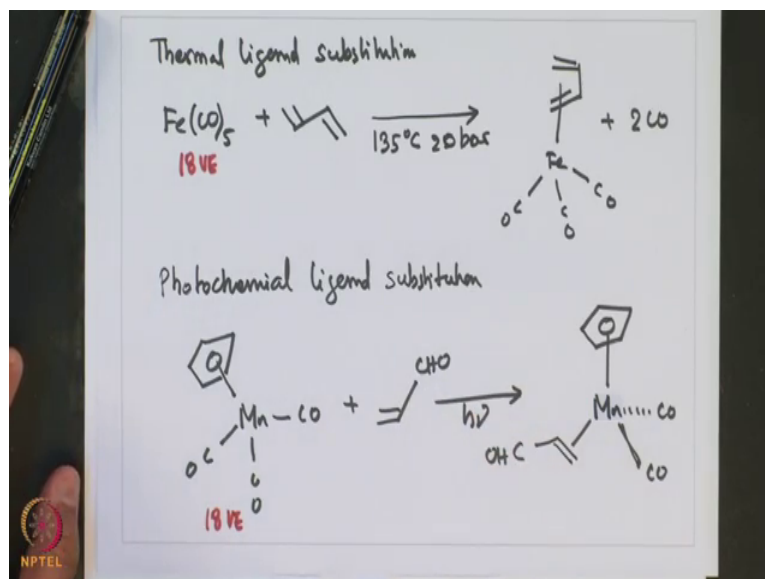 Thermal ligand substitution
Fe(CO)5 + 135°C 20 bar + 2CO
18 VE
Fe
OC CO CO
Photochemial ligand substitution
CHO
Mn-CO + hν Mn CO
OC CO OHC CO
18 VE
NPTEL